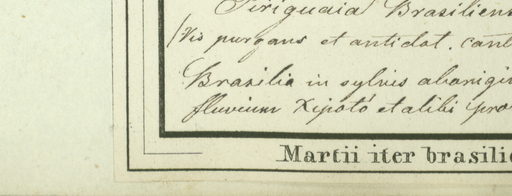 Piriguaia Brasiliens
Vis purgans et antidot. cont
Brasilia in sylvis aborigin
fluvium Xipotó et alibi pro
Martii iter brasilie